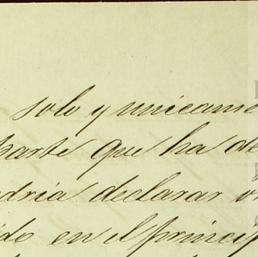 solo y unicame
parte que ha de
dria declarar
de en el princip